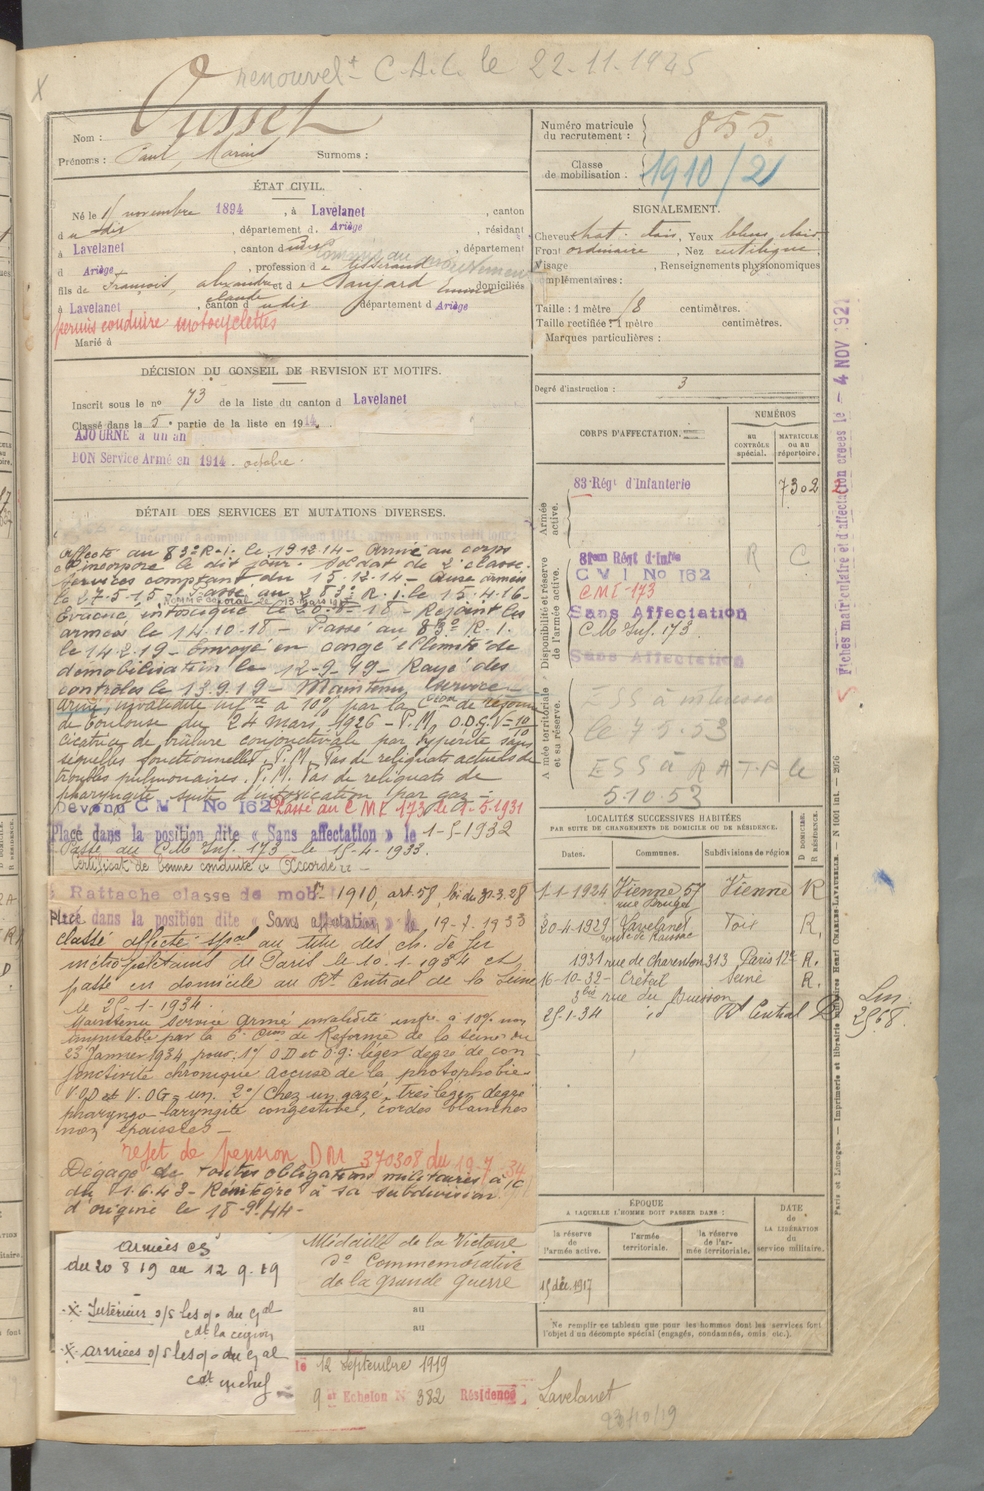 renouvelt C.A.C. le 22-11-1945
Nom : Vusset
Prénoms : Paul, Marius Surnoms :
Numéro matricule du recrutement : 855
Classe de mobilisation : 1910/21
ÉTAT CIVIL.
Né le novembre 1894, à Lavelanet, canton
d udit, département d Ariège, résidant
à Lavelanet, canton d, département
d Ariège, profession de tisserand
fils de François, alexandre et de domiciliés
claude
à Lavelanet canton d udit département d Ariège
permis conduire motocyclettes
Marié à
SIGNALEMENT.
Cheveux chat. clairs, Yeux bleus clairs
Front ordinaire, Nez rectiligne
Visage, Renseignements physionomiques
complémentaires :
Taille : 1 mètre 18 centimètres.
Taille rectifiée : 1 mètre centimètres.
Marques particulières :
Degré d'instruction : 3
DÉCISION DU CONSEIL DE REVISION ET MOTIFS.
Inscrit sous le no 73 de la liste du canton d Lavelanet
Classé dans la 5e partie de la liste en 1914.
AJOURNÉ à un an
BON Service Armé en 1914. octobre.
DÉTAIL DES SERVICES ET MUTATIONS DIVERSES.
Affecté au 83e R.I. le 19 12 14 - Arrivé au corps
et incorporé le dit jour. Soldat de 2e classe.
Services comptant du 15.12.14 - Aux armées
le 27-5-15 - Passé au 283e R.I. le 15.4.16 -
Nommé caporal le 13 mars
Evacué, intoxiqué le 20.8.18 - Rejoint les
armées le 14.10.18 - Passé au 83e R.I.
le 14.2.19 - Envoyé en congé illimité de
démobilisation le 12-9-19 - Rayé des
contrôles le 13.9.19 - Maintenu service
armé, invalidité infre à 10% par la Cion de réforme
de Toulouse du 24 Mars 1926 - P.M. O.D.G. V = 10/10
Cicatrice de brûlure conjonctivale par hypérite sans
séquelles fonctionnelles. P.M. Pas de reliquats actuels de
troubles pulmonaires. P.M. Pas de reliquats de
pharyngite suite d'intoxication par gaz -
Devenu C M I No 162 Passé au C M I 173 le 1-5-1931
Placé dans la position dite « Sans affectation » le 1-5-1932
Passé au C.M. Inf. 173 le 15-4-1933.
Certificat de bonne conduite « Accordé » -
Rattaché classe de mobon 1910, art. 58, loi du 31-3-28
Placé dans la position dite « Sans affectation » le 19-7-1933
classé affecté spal au titre des ch. de fer
métropolitains de Paris le 10.1-1934 et
passé en domicile au Rt Central de la Seine
le 25-1-1934.
Maintenu service armé invalidité infre à 10% non
imputable par la 6e Cion de Réforme de la Seine du
23 Janvier 1934 pour : 1°/ O D et O G : léger degré de con
jonctivite chronique accuse de la photophobie
V OD et V. OG = un. 2°/ Chez un gazé, très léger degré
pharyngo-laryngite congestive, cordes blanches
rejet de pension DM 370308 du 19-7-34
Dégagé de toutes obligations militaires à /c
du 1.6.43 - Réintégré à sa subdivision
d'origine le 18-9-44 -
Armées cs
du 20 8 19 au 12 9 19
-x- Intérieur s/s les o. du Gal
cdt la région
-x- armées s/s les o. du Gal
cdt en chef
Médaille de la Victoire
do Commémorative
de la grande guerre
au
au
le 12 Septembre 1919
9e Echelon N° 382 Résidence Lavelanet
23/10/19
CORPS D'AFFECTATION.
NUMÉROS
au contrôle spécial.
matricule ou au répertoire.
Armée active.
83e Régt d'Infanterie 7302
Disponibilité et réserve de l'armée active.
81em Régt d'Infie R C
C M I No 162
C M I 173
Sans Affectation
C.M. Inf. 173
Sans Affectation
Armée territoriale et sa réserve.
le 7 5.53
ESS à R A T P le
5.10.53
LOCALITÉS SUCCESSIVES HABITÉES
PAR SUITE DE CHANGEMENTS DE DOMICILE OU DE RÉSIDENCE.
Dates. Communes. Subdivisions de région
D DOMICILE. R RÉSIDENCE.
1-1-1924 Vienne 57 Vienne R
20-4-1929 Lavelanet Foix R.
1931 rue de Charenton 313 Paris 12e R.
16-10-32 - Créteil Seine R.
3bis rue du Buisson
25-1-34 id Rt Central D
2568
ÉPOQUE
A LAQUELLE L'HOMME DOIT PASSER DANS :
la réserve de l'armée active.
l'armée territoriale.
la réserve de l'armée territoriale.
DATE de LA LIBÉRATION du service militaire.
15 déc. 1917
Ne remplir ce tableau que pour les hommes dont les services font
l'objet d'un décompte spécial (engagés, condamnés, omis etc.).
Fiches matriculaire et d'affectation créées le - 4 NOV 1921
Paris et Limoges. — Imprimerie et librairie militaires Henri CHARLES-LAVAUZELLE. — N 1001 int. — 2976